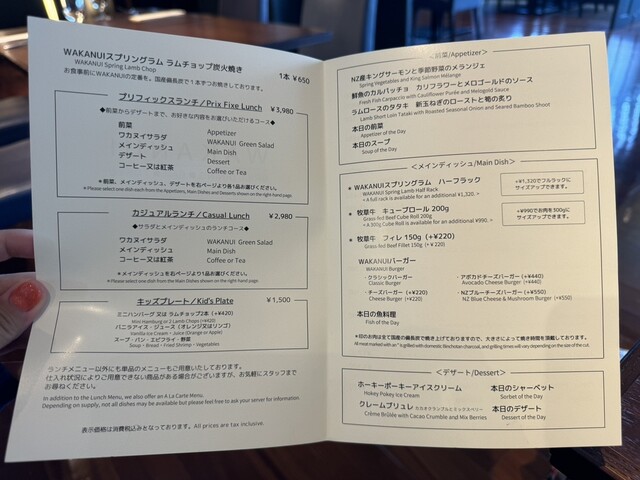 WAKANUIスプリングラム ラムチョップ炭火焼き
WAKANUI Spring Lamb Chop
1本 ¥650
お食事前にWAKANUIの定番を。国産備長炭で1本ずつお焼きしております。
プリフィックスランチ/Prix Fixe Lunch ¥3,980
◆前菜からデザートまで、お好きな内容をお選びいただけるコース◆
前菜 Appetizer
ワカヌイサラダ WAKANUI Green Salad
メインディッシュ Main Dish
デザート Dessert
コーヒー又は紅茶 Coffee or Tea
＊前菜、メインディッシュ、デザートを右ページより各1品お選びください。
＊Please select one dish each from the Appetizers, Main Dishes and Desserts shown on the right-hand page.
カジュアルランチ/Casual Lunch ¥2,980
◆サラダとメインディッシュのランチコース◆
ワカヌイサラダ WAKANUI Green Salad
メインディッシュ Main Dish
コーヒー又は紅茶 Coffee or Tea
＊メインディッシュを右ページより1品お選びください。
＊Please select one dish from the Main Dishes shown on the right-hand page.
キッズプレート/Kid's Plate ¥1,500
ミニハンバーグ 又は ラムチョップ2本 (+¥420)
Mini Hamburg or 2 Lamb Chops (+¥420)
バニラアイス・ジュース (オレンジ又はリンゴ)
Vanilla Ice Cream・Juice (Orange or Apple)
スープ・パン・エビフライ・野菜
Soup・Bread・Fried Shrimp・Vegetables
ランチメニュー以外にも単品のメニューもご用意いたしております。
仕入れ状況によりご用意できない商品がある場合がございますが、お気軽にスタッフまで
お尋ねください。
In addition to the Lunch Menu, we also offer an A La Carte Menu.
Depending on supply, not all dishes may be available but please feel free to ask your server for information.
表示価格は消費税込みとなっております。All prices are tax inclusive.
＜前菜/Appetizer＞
NZ産キングサーモンと季節野菜のメランジェ
Spring Vegetables and King Salmon Mélange
鮮魚のカルパッチョ カリフラワーとメロゴールドのソース
Fresh Fish Carpaccio with Cauliflower Purée and Melogold Sauce
ラムロースのタタキ 新玉ねぎのローストと筍の炙り
Lamb Short Loin Tataki with Roasted Seasonal Onion and Seared Bamboo Shoot
本日の前菜
Appetizer of the Day
本日のスープ
Soup of the Day
＜メインディッシュ/Main Dish＞
＊WAKANUIスプリングラム ハーフラック
WAKANUI Spring Lamb Half Rack
＜A full rack is available for an additional ¥1,320.＞
＋¥1,320でフルラックに
サイズアップできます。
＊牧草牛 キューブロール 200g
Grass-fed Beef Cube Roll 200g
＜A 300g Cube Roll is available for an additional ¥990.＞
＋¥990でお肉を300gに
サイズアップできます。
＊牧草牛 フィレ 150g (+¥220)
Grass-fed Beef Fillet 150g (+¥220)
WAKANUIバーガー
WAKANUI Burger
・クラシックバーガー
Classic Burger
・アボカドチーズバーガー (+¥440)
Avocado Cheese Burger (+¥440)
・チーズバーガー (+¥220)
Cheese Burger (+¥220)
・NZブルーチーズバーガー (+¥550)
NZ Blue Cheese & Mushroom Burger (+¥550)
本日の魚料理
Fish of the Day
＊印のお肉は全て国産の備長炭で焼き上げておりますので、大きさによって焼き時間を頂戴しております。
All meat marked with an * is grilled with domestic Binchotan charcoal, and grilling times will vary depending on the size of the cut.
＜デザート/Dessert＞
ホーキーポーキーアイスクリーム
Hokey Pokey Ice Cream
本日のシャーベット
Sorbet of the Day
クレームブリュレ カカオクランブルとミックスベリー
Crème Brûlée with Cacao Crumble and Mix Berries
本日のデザート
Dessert of the Day